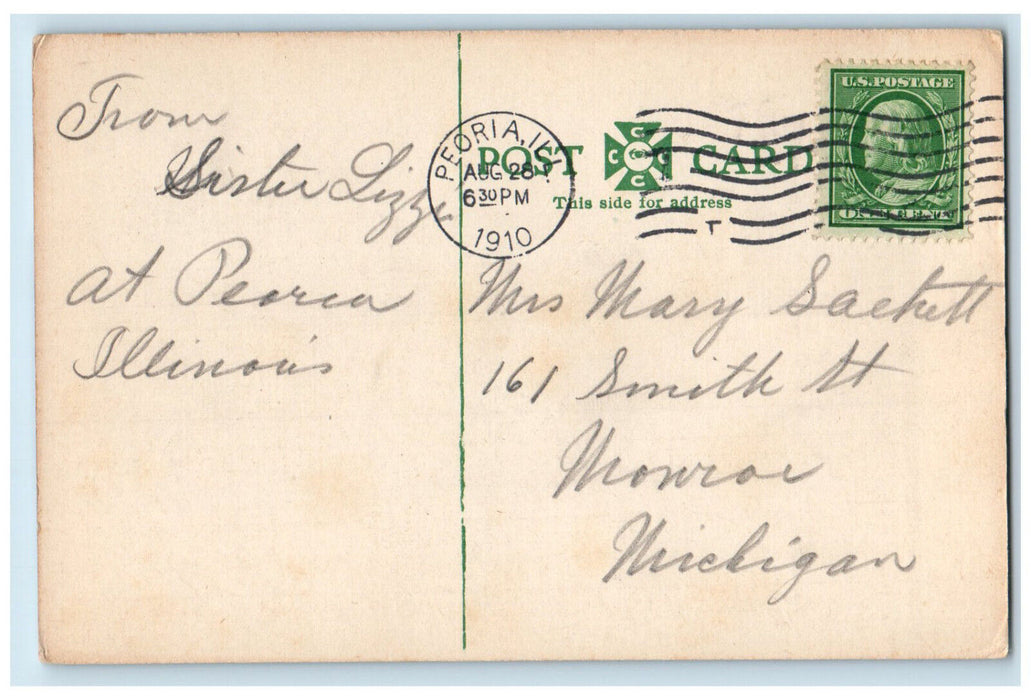 From
Sister Lizzie
at Peoria
Illinois
POST CARD
This side for address
PEORIA, ILL.
AUG 28
6 30 PM
1910
T
U.S. POSTAGE
ONE CENT
Mrs Mary Sackett
161 Smith St
Monroe
Michigan